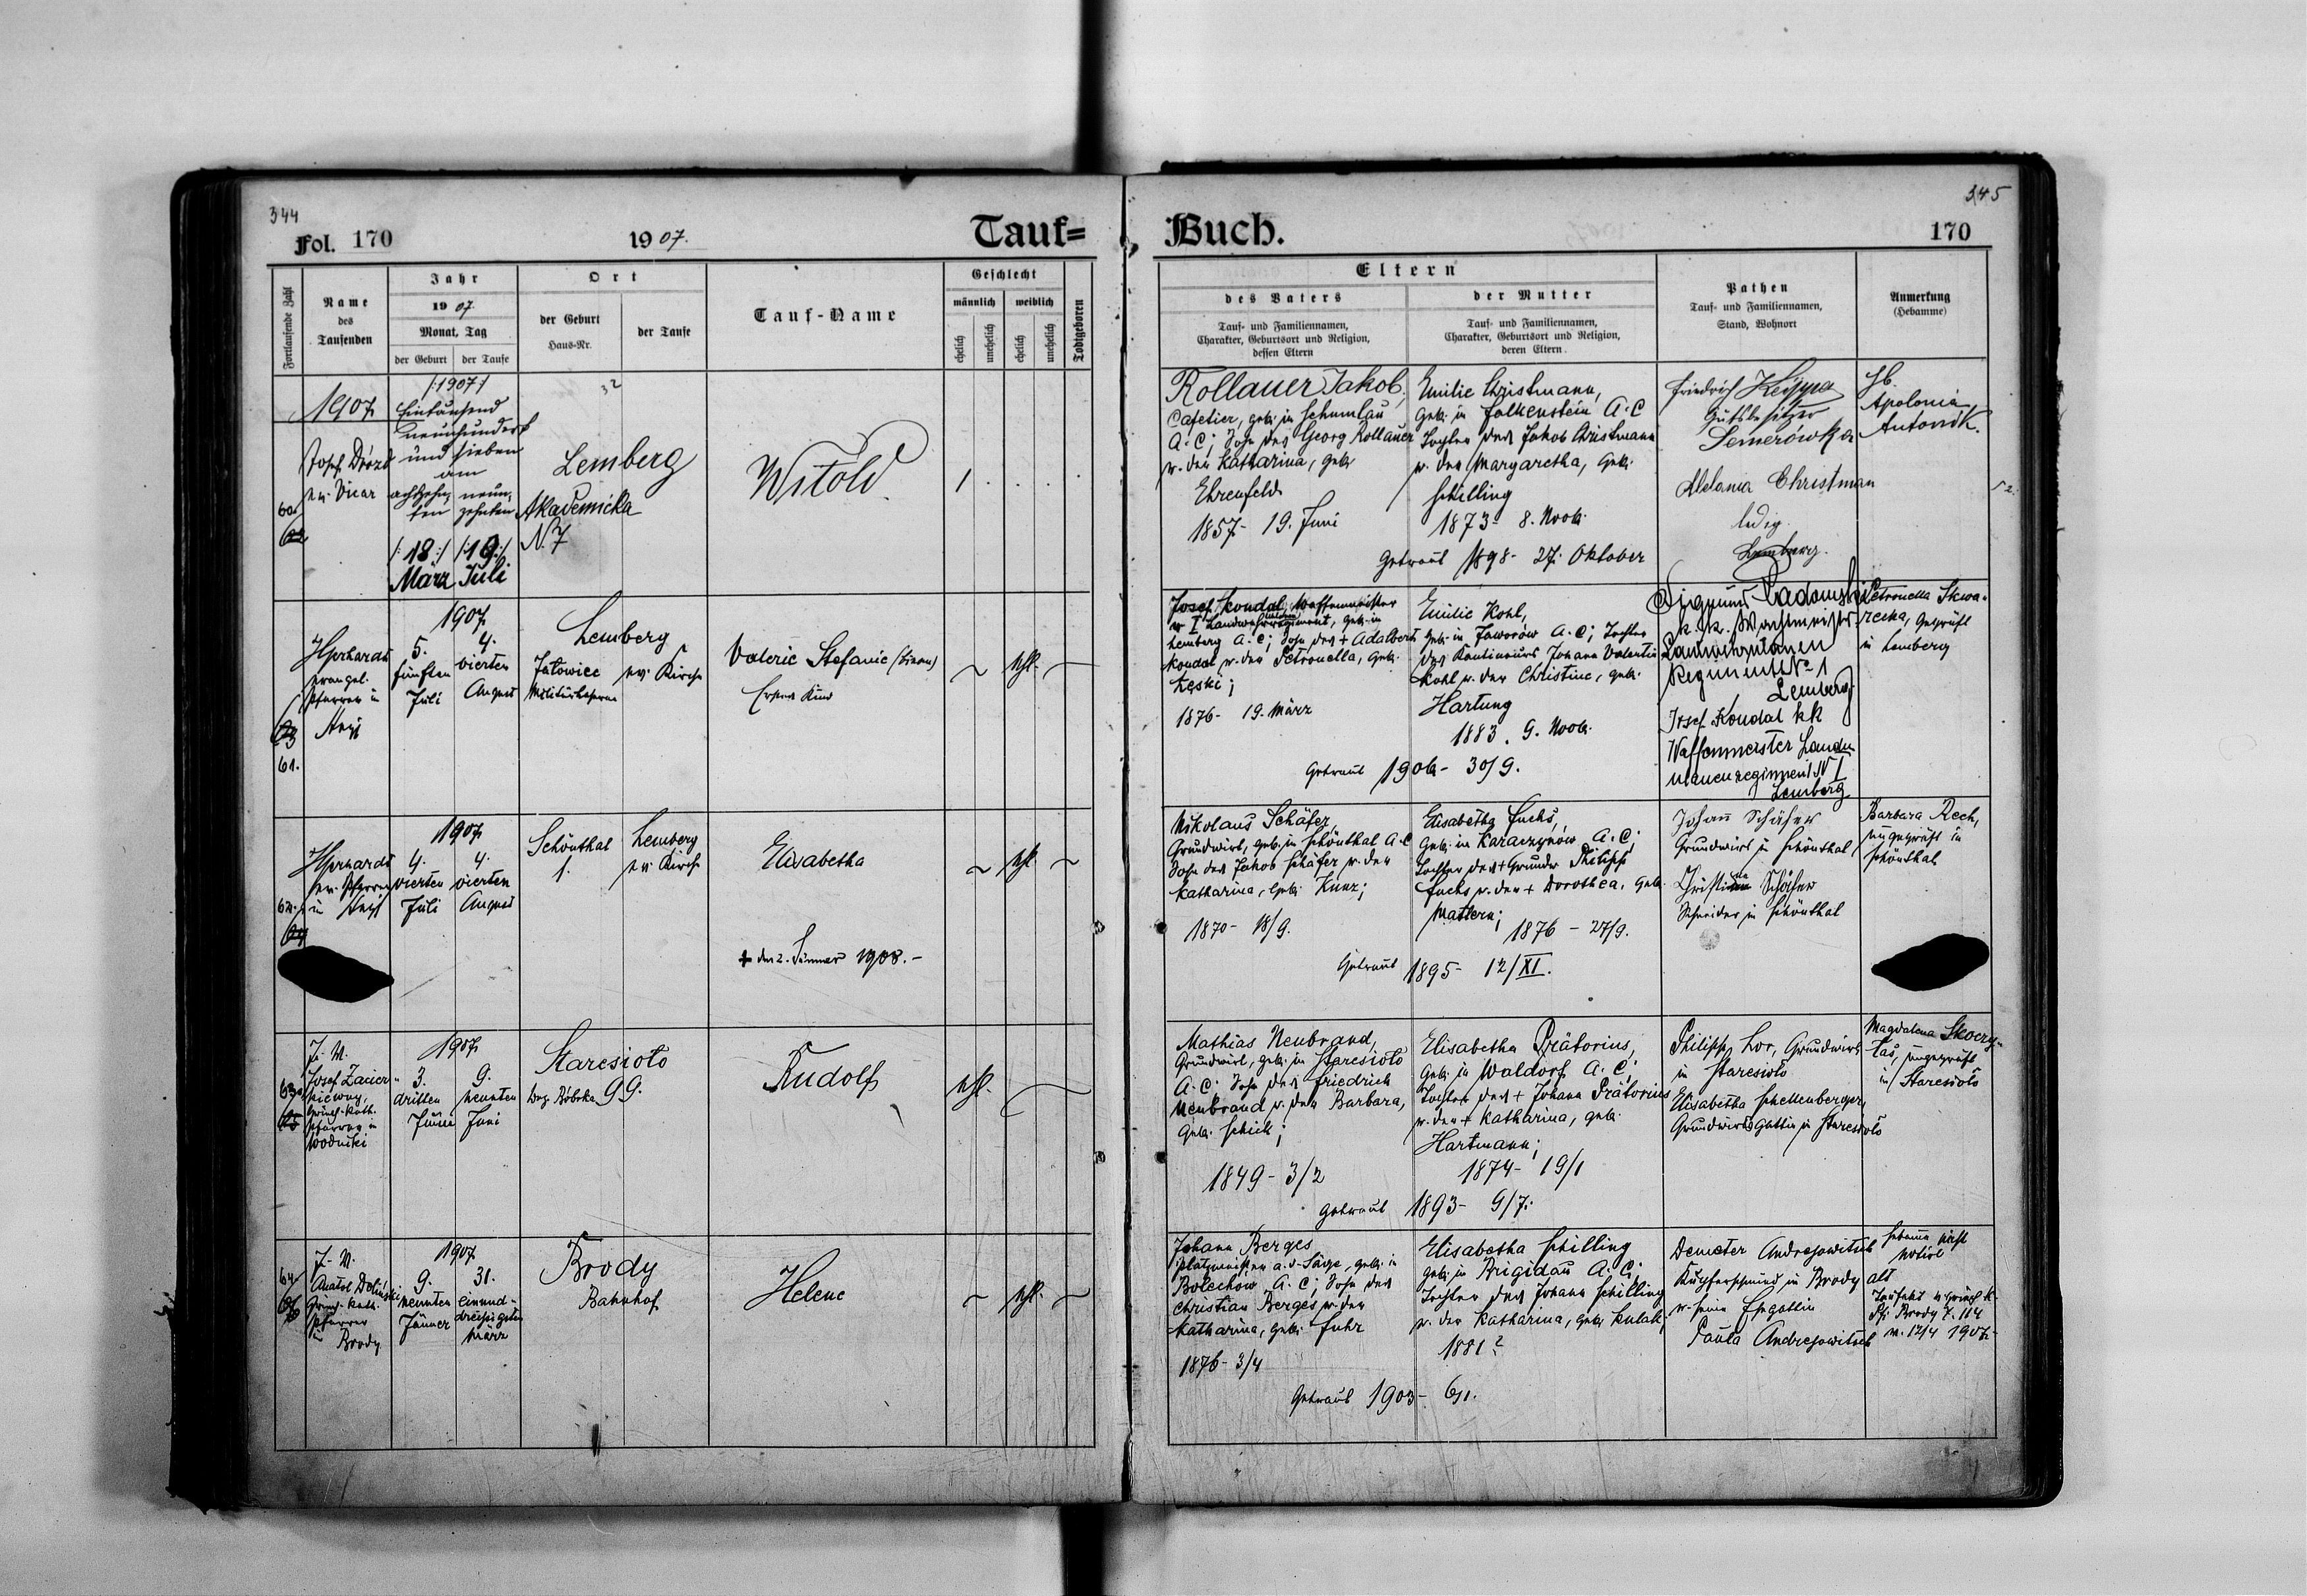 344
Fol. 170
1907.
Tauf=
Fortlaufende Zahl
Name
des
Taufenden
Jahr
1907.
Monat, Tag
der Geburt
der Taufe
Ort
der Geburt
Haus-Nr.
der Taufe
Tauf-Name
Geschlecht
männlich
weiblich
ehelich
unehelich
ehelich
unehelich
Todtgeboren
1907
Josef Drozd
ev. Vicar
60.
/:1907:/
Eintausend
neunhundert
und sieben
am
achtzehn= neun=
ten zehnten
/:18:/ /:19:/
März Juli
32
Lemberg
Akademicka
N. 7
Witold
1
1907
evangel.
Pfarrer in
61.
5. 4.
fünften vierten
Juli August
Lemberg
Jatowiec ev. Kirche
Valerie Stefanie
Erstes Kind
ehl.
1907
ev. Pfarrer
in
62.
4. 4.
vierten vierten
Juli August
Schönthal Lemberg
1. ev. Kirche
Elisabetha
ehl.
+ den 2. Jänner 1908.-
J. M.
Josef
griech.-kath.
Pfarrer in
63.
1907
3. 9.
dritten neunten
Juni Juni
Staresioto
Bez. Bóbrka 99.
Rudolf
ehl.
J. M.
Anatol Doliński
griech. kath.
Pfarrer
in Brody
64.
1907
9. 31.
neunten einund-
dreißigsten
Jänner März
Brody
Bahnhof
Helene
ehl.
345
Buch.
170
Eltern
des Vaters
Tauf- und Familiennamen,
Charakter, Geburtsort und Religion,
dessen Eltern
der Mutter
Tauf- und Familiennamen,
Charakter, Geburtsort und Religion,
deren Eltern.
Pathen
Tauf- und Familiennamen,
Stand, Wohnort
Anmerkung
(Hebamme)
Rollauer Jakob,
Cafetier, geb. in Schumlau
A. C; Sohn des Georg Rollauer
u. der Katharina, geb.
Ehrenfeld
1857- 19. Juni
Emilie Christmann,
geb. in Falkenstein A. C
Tochter des Jakob Christmann
u. der Margaretha, geb.
Schilling
1873- 8. Novb.
Getraut 1898- 27. Oktober
Friedrich
Gutsbesitzer
Semerówka
Melania Christman
ledig.
Lemberg.
Hb.
Apolonia
Antonik.
Josef Kondal, Waffenmeister
Lemberg A. C; Sohn des + Adalbert
Kondal u. der Petronella, geb.
1876- 19. März
Emilie Kohl,
geb. in Jaworów A. C; Tochter
des Kontineurs Johann Valentin
Kohl u. der Christine, geb.
Hartung
1883. 9. Novb.
Getraut 1906- 30/9.
k. k. Wachtmeister
Regiments No 1
Lemberg
Josef Kondal kk
Waffenmeister Landw
ulanenregiment N I
Lemberg
Petronella Skwa=
recka, geprüft
in Lemberg
Nikolaus Schäfer,
Grundwirt, geb. in Schönthal A. C
Sohn des Jakob Schäfer u. der
Katharina, geb. Kunz;
1870- 18/9.
Elisabetha Fuchs,
geb. in Karaczynów A. C;
Tochter des + Grundw Philipp
Fuchs u. der + Dorothea, geb.
Mattern;
1876 - 27/9.
Getraut 1895- 12/XI.
Johann Schäfer
Grundwirt in Schönthal
Schäfer
Schneider in Schönthal
Barbara Rech,
ungeprüft in
Schönthal
Mathias Neubrand,
Grundwirt, geb. in Staresioto
A. C; Sohn des Friedrich
Neubrand u. der Barbara,
geb. Schick;
1849- 3/2
Elisabetha Prätorius,
geb. in Waldorf A. C;
Tochter des + Johann Prätorius
u. der + Katharina, geb.
Hartmann;
1874- 19/1
Getraut 1893- 9/7.
Philipp Lor, Grundwirt
in Staresioto
Elisabetha Schellenberger,
Grundwirts Gattin in Staresioto
Magdalena
ungeprüft
in Staresioto
Johann Berges
Platzmeister a. d. Säge, geb. in
Bolechow A. C; Sohn des
Christian Berges u. der
Katharina, geb. Fuhr
1876- 3/4
Elisabetha Schilling
geb. in Brigidau A. C;
Tochter des Johann Schilling
u. der Katharina, geb. Kulak;
1881?
Getraut 1903- 6/1.
Demeter Andrejowitsch
Kupferschmied in Brody
u. seine Ehegattin
Paula Andrejowitsch
Hebamme nicht
notirt
Brody Z. 114
v. 12/4 1907.